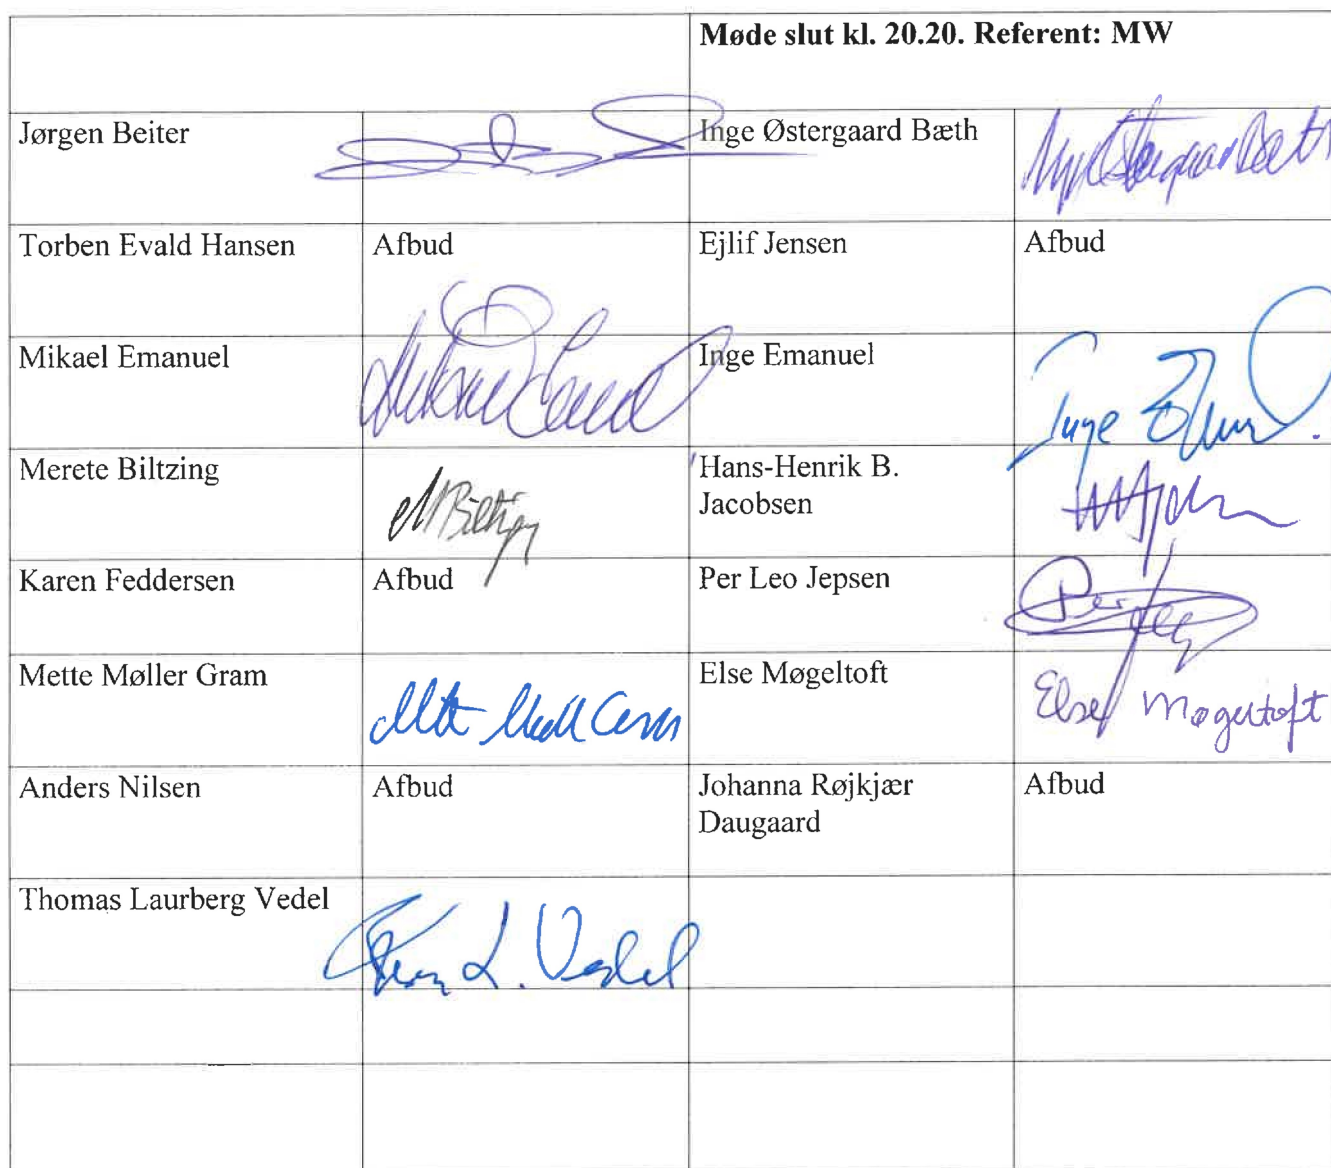 Møde slut kl. 20.20. Referent: MW
Jørgen Beiter
Inge Østergaard Bæth
Torben Evald Hansen
Afbud
Ejlif Jensen
Afbud
Mikael Emanuel
Inge Emanuel
Inge
Merete Biltzing
MBiltzing
Hans-Henrik B.
Jacobsen
Karen Feddersen
Afbud
Per Leo Jepsen
Per
Mette Møller Gram
Else Møgeltoft
Else Møgeltoft
Anders Nilsen
Afbud
Johanna Røjkjær
Daugaard
Afbud
Thomas Laurberg Vedel
L. Vedel